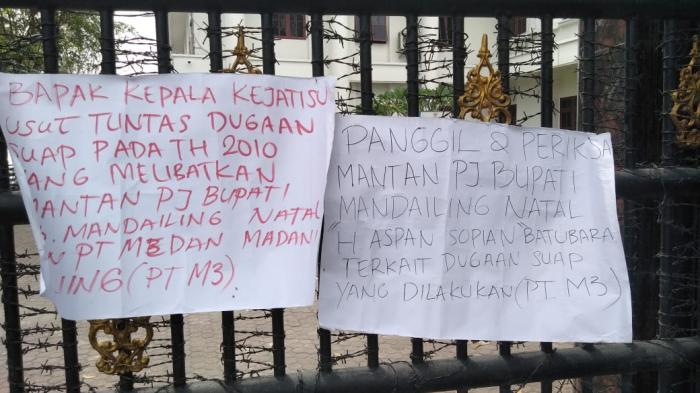 BAPAK KEPALA KEJATISU
USUT TUNTAS DUGAAN
SUAP PADA TH 2010
YANG MELIBATKAN
MANTAN PJ BUPATI
MANDAILING NATAL
N PT MEDAN MADANI
(PT M3).
PANGGIL & PERIKSA
MANTAN PJ BUPATI
MANDAILING NATAL
"H. ASPAN SOPIAN BATUBARA"
TERKAIT DUGAAN SUAP
YANG DILAKUKAN (PT. M3)